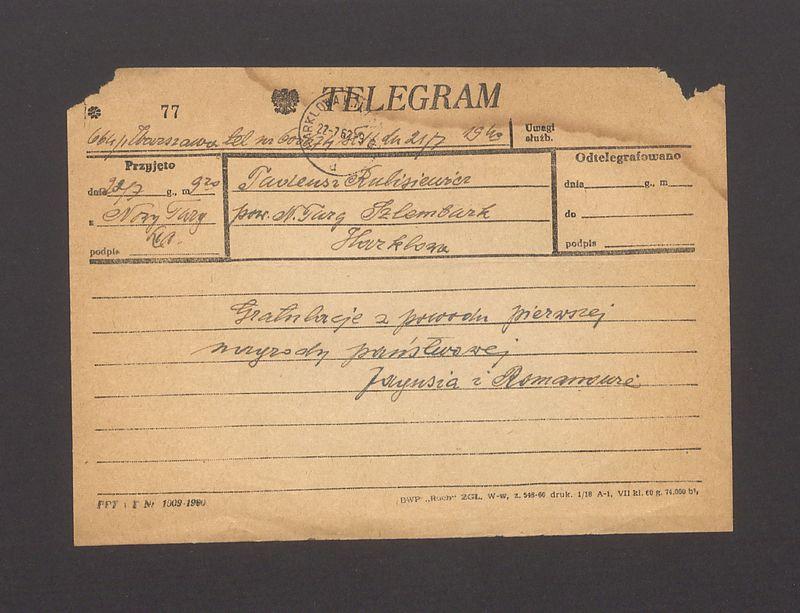 77
TELEGRAM
Warszawa tel nr dn 21/7 19 40
Uwagi służb.
Przyjęto
dnia 22/7 g., m 920
z Nowy Targ
podpis
HARKLOWA
22-7 62-9
Tadeusz Kubisiewicz
pow. N. Targ Szlembark
Harklowa
Odtelegrafowano
dnia g., m
do
podpis
Gratulacje z powodu pierwszej
nagrody państwowej
Jagusia i Romanowie
PPT i T Nr 1009-1960
BWP „Ruch" ZGL. W-w, z. 548-60 druk. 1/18 A-1, VII kl. 60 g. 74.000 bl.